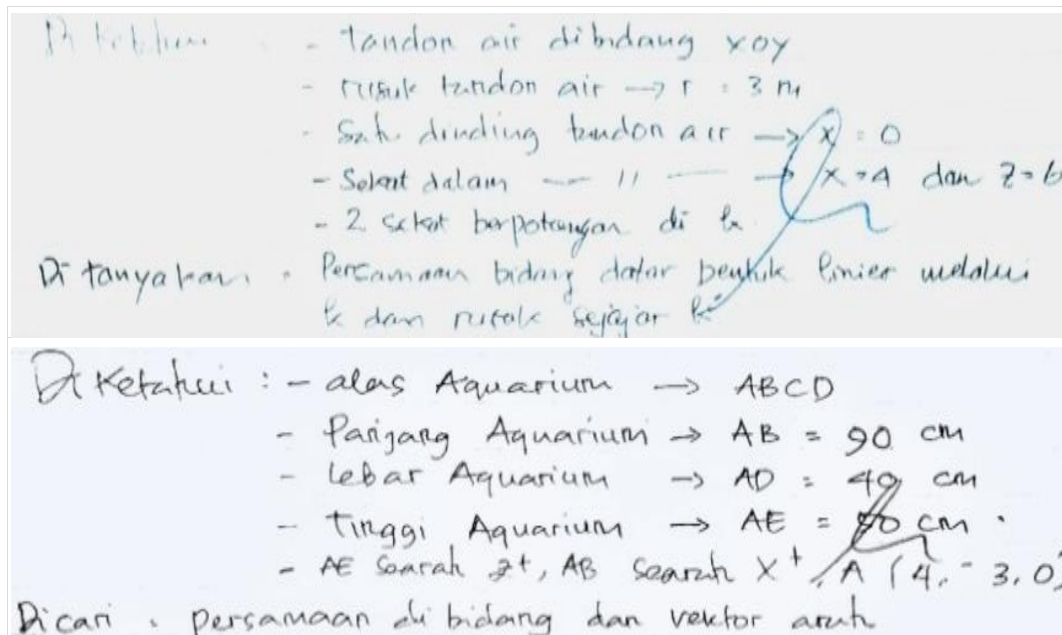 Diketahui : - tandon air dibidang xoy
- rusuk tandon air → r = 3 m
- Satu dinding tandon air → x = 0
- Sekat dalam — 11 — → x = 4 dan z = 6
- 2 sekat berpotongan di k
Ditanyakan : Persamaan bidang datar bentuk linier melalui
k dan rusuk sejajar k
Diketahui : - alas Aquarium → ABCD
- Panjang Aquarium → AB = 90 cm
- Lebar Aquarium → AD = 40 cm
- Tinggi Aquarium → AE = 50 cm .
- AE searah z+, AB searah X+, A (4, -3, 0)
Dicari : persamaan di bidang dan vektor arah